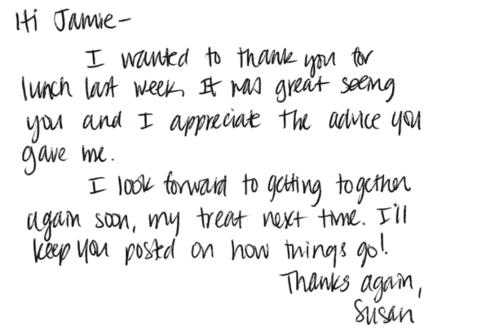 Hi Jamie-
I wanted to thank you for
lunch last week. It was great seeing
you and I appreciate the advice you
gave me.
I look forward to getting together
again soon, my treat next time. I'll
keep you posted on how things go!
Thanks again,
Susan